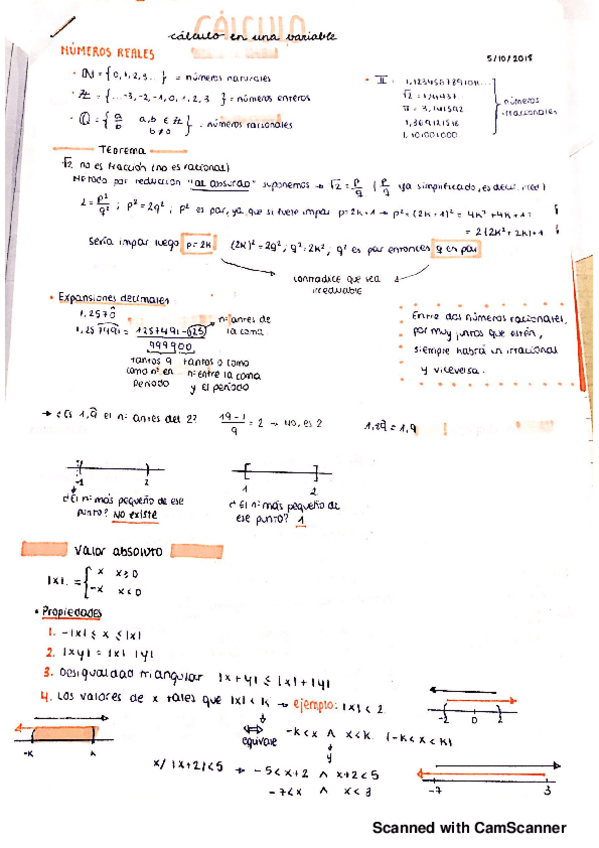 CÁLCULO
cálculo en una variable
NÚMEROS REALES
5/10/2018
· ℕ = {0,1,2,3...} = números naturales
· ℤ = {...-3,-2,-1,0,1,2,3 } = números enteros
· ℚ = {a/b a,b ∈ ℤ b≠0} . números racionales
números irracionales
1,101001000
Teorema
√2 no es fracción (no es racional)
suponemos → √2 = p/q (p/q ya simplificado, es decir, irred)
2 = p²/q² ; p² = 2q² ; p² es par, ya que si fuere impar p=2k+1 → p² = (2k+1)² = 4k²+4k+1 =
= 2(2k²+2k)+1
Sería impar luego p=2k (2k)² = 2q², q² = 2k², q² es par entonces q es par
contradice que sea irreducible
· Expansiones decimales
n: antes de la coma
999900
tantos 9 como nº en período
tantos 0 como nº entre la coma y el período
Entre dos números racionales,
por muy juntos que estén,
siempre habrá un irracional
y viceversa.
→ ¿Es 1,9 el nº antes del 2? 19-1/9 = 2 → no, es 2
-1 2
1 2
¿El nº más pequeño de ese punto? No existe
¿El nº más pequeño de ese punto? 1
Valor absoluto
|x| = { x x≥0
-x x<0
· Propiedades
1. -|x| ≤ x ≤ |x|
2. |xy| = |x| |y|
3. Desigualdad triangular |x+y| ≤ |x|+|y|
4. Los valores de x tales que |x| < k → ejemplo: |x| < 2
-2 0 2
equivale -k<x ∧ x<k (-k<x<k)
y
-k k
x/ |x+2|<5 → -5<x+2 ∧ x+2<5
-7<x ∧ x<3
-7 3
Scanned with CamScanner